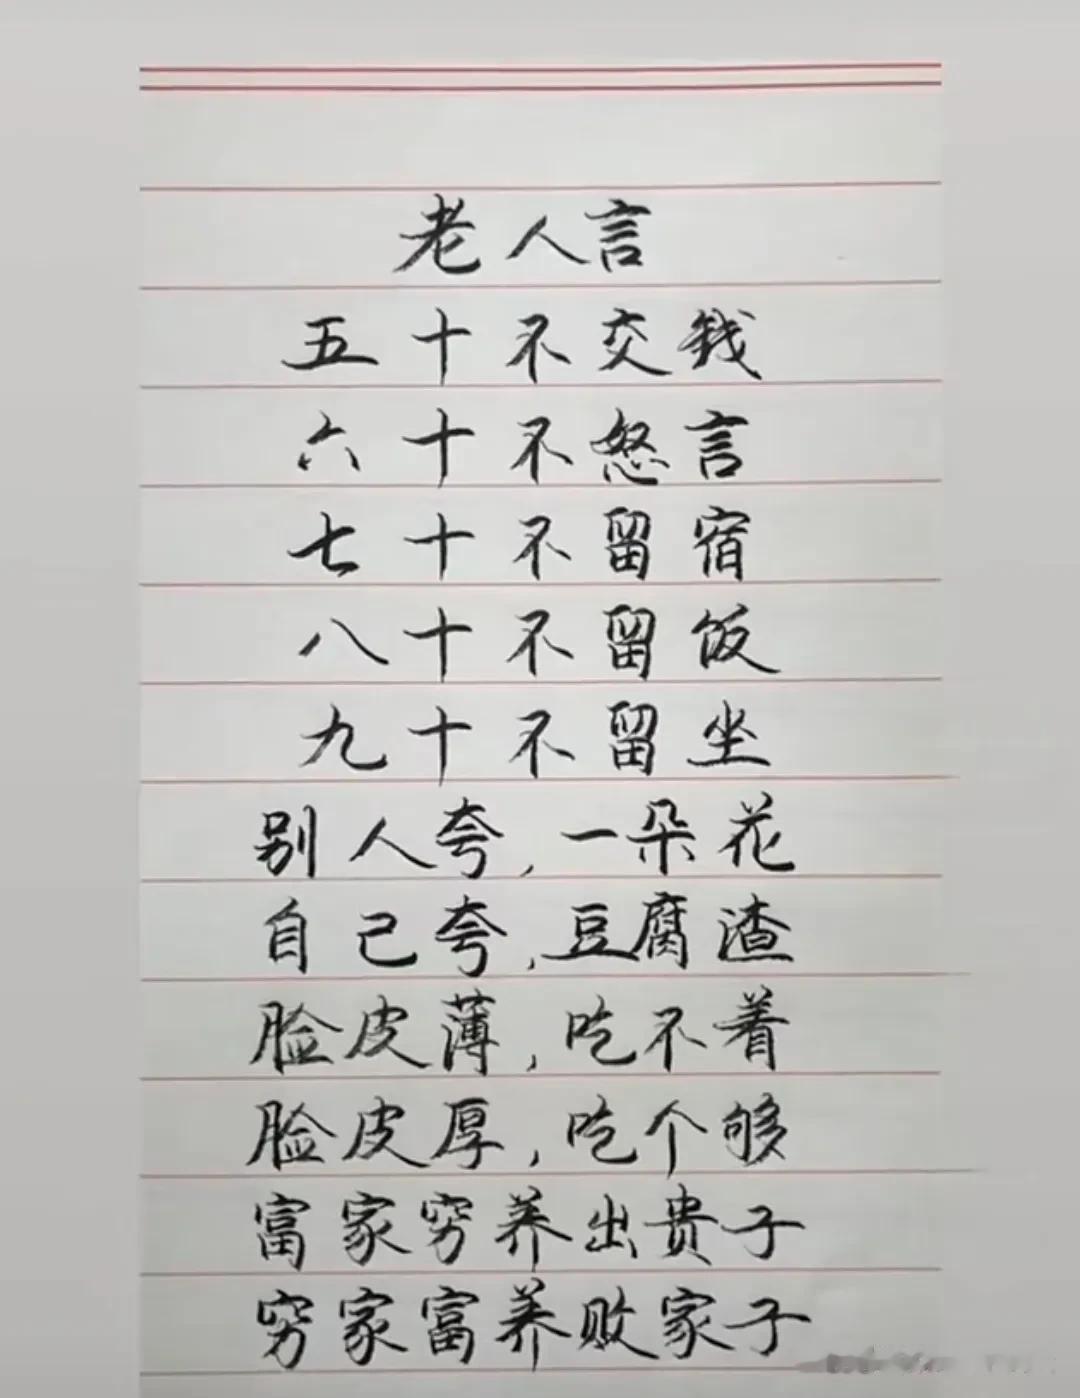 老人言
五十不交钱
六十不怒言
七十不留宿
八十不留饭
九十不留坐
别人夸,一朵花
自己夸,豆腐渣
脸皮薄,吃不着
脸皮厚,吃个够
富家穷养出贵子
穷家富养败家子